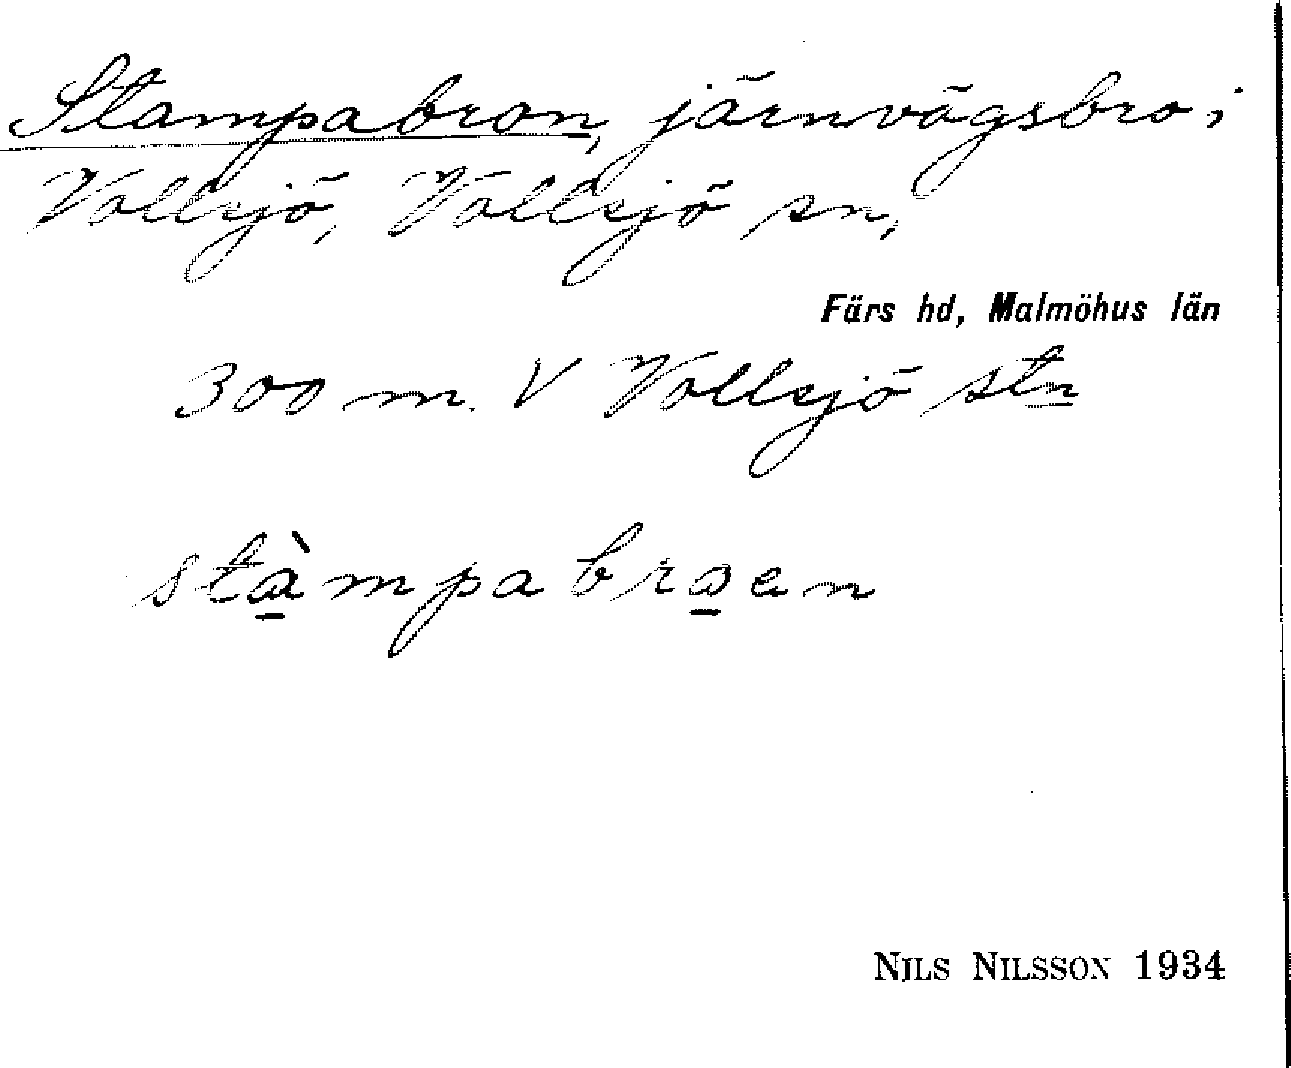 Stampabron, järnvägsbro i
Vollsjö, Vollsjö sn,
Färs hd, Malmöhus län
300 m. V Vollsjö stn
stàmpabroen
NILS NILSSON 1934